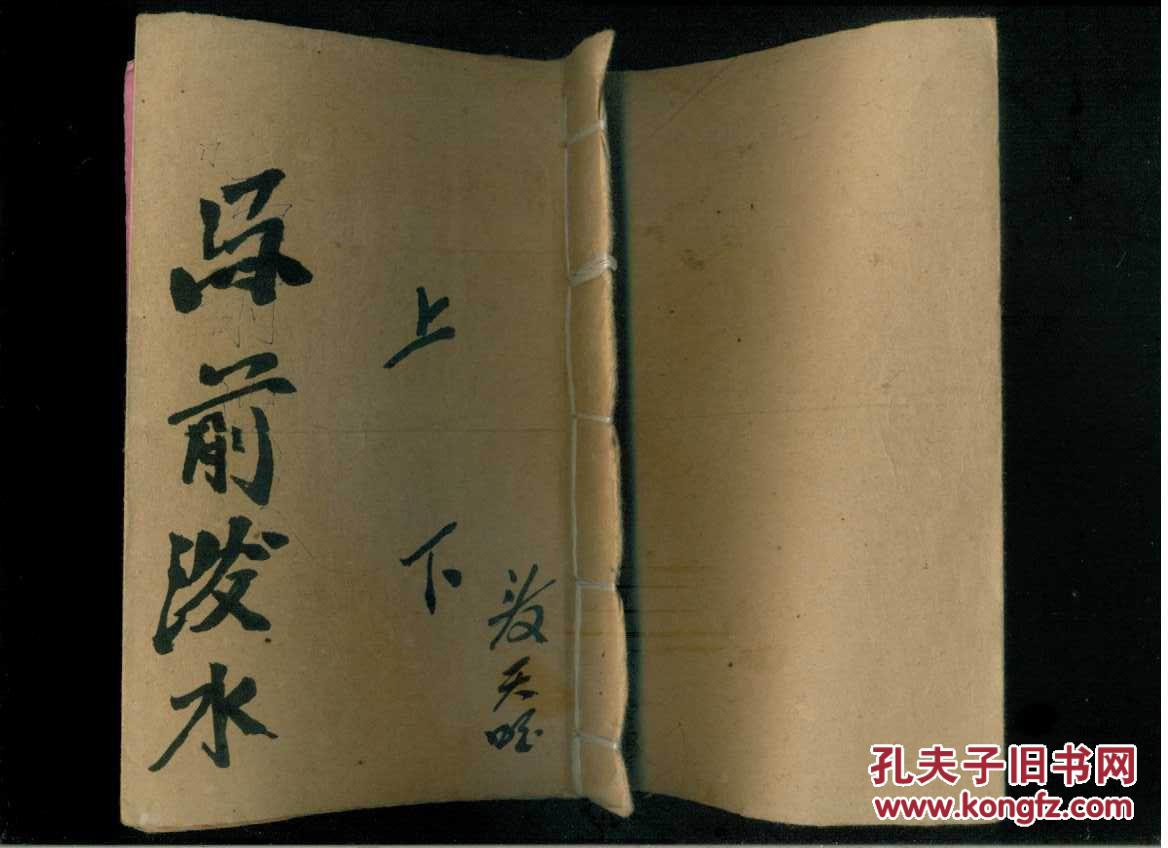 马前泼水
上
下
天
孔夫子旧书网
www.kongfz.com